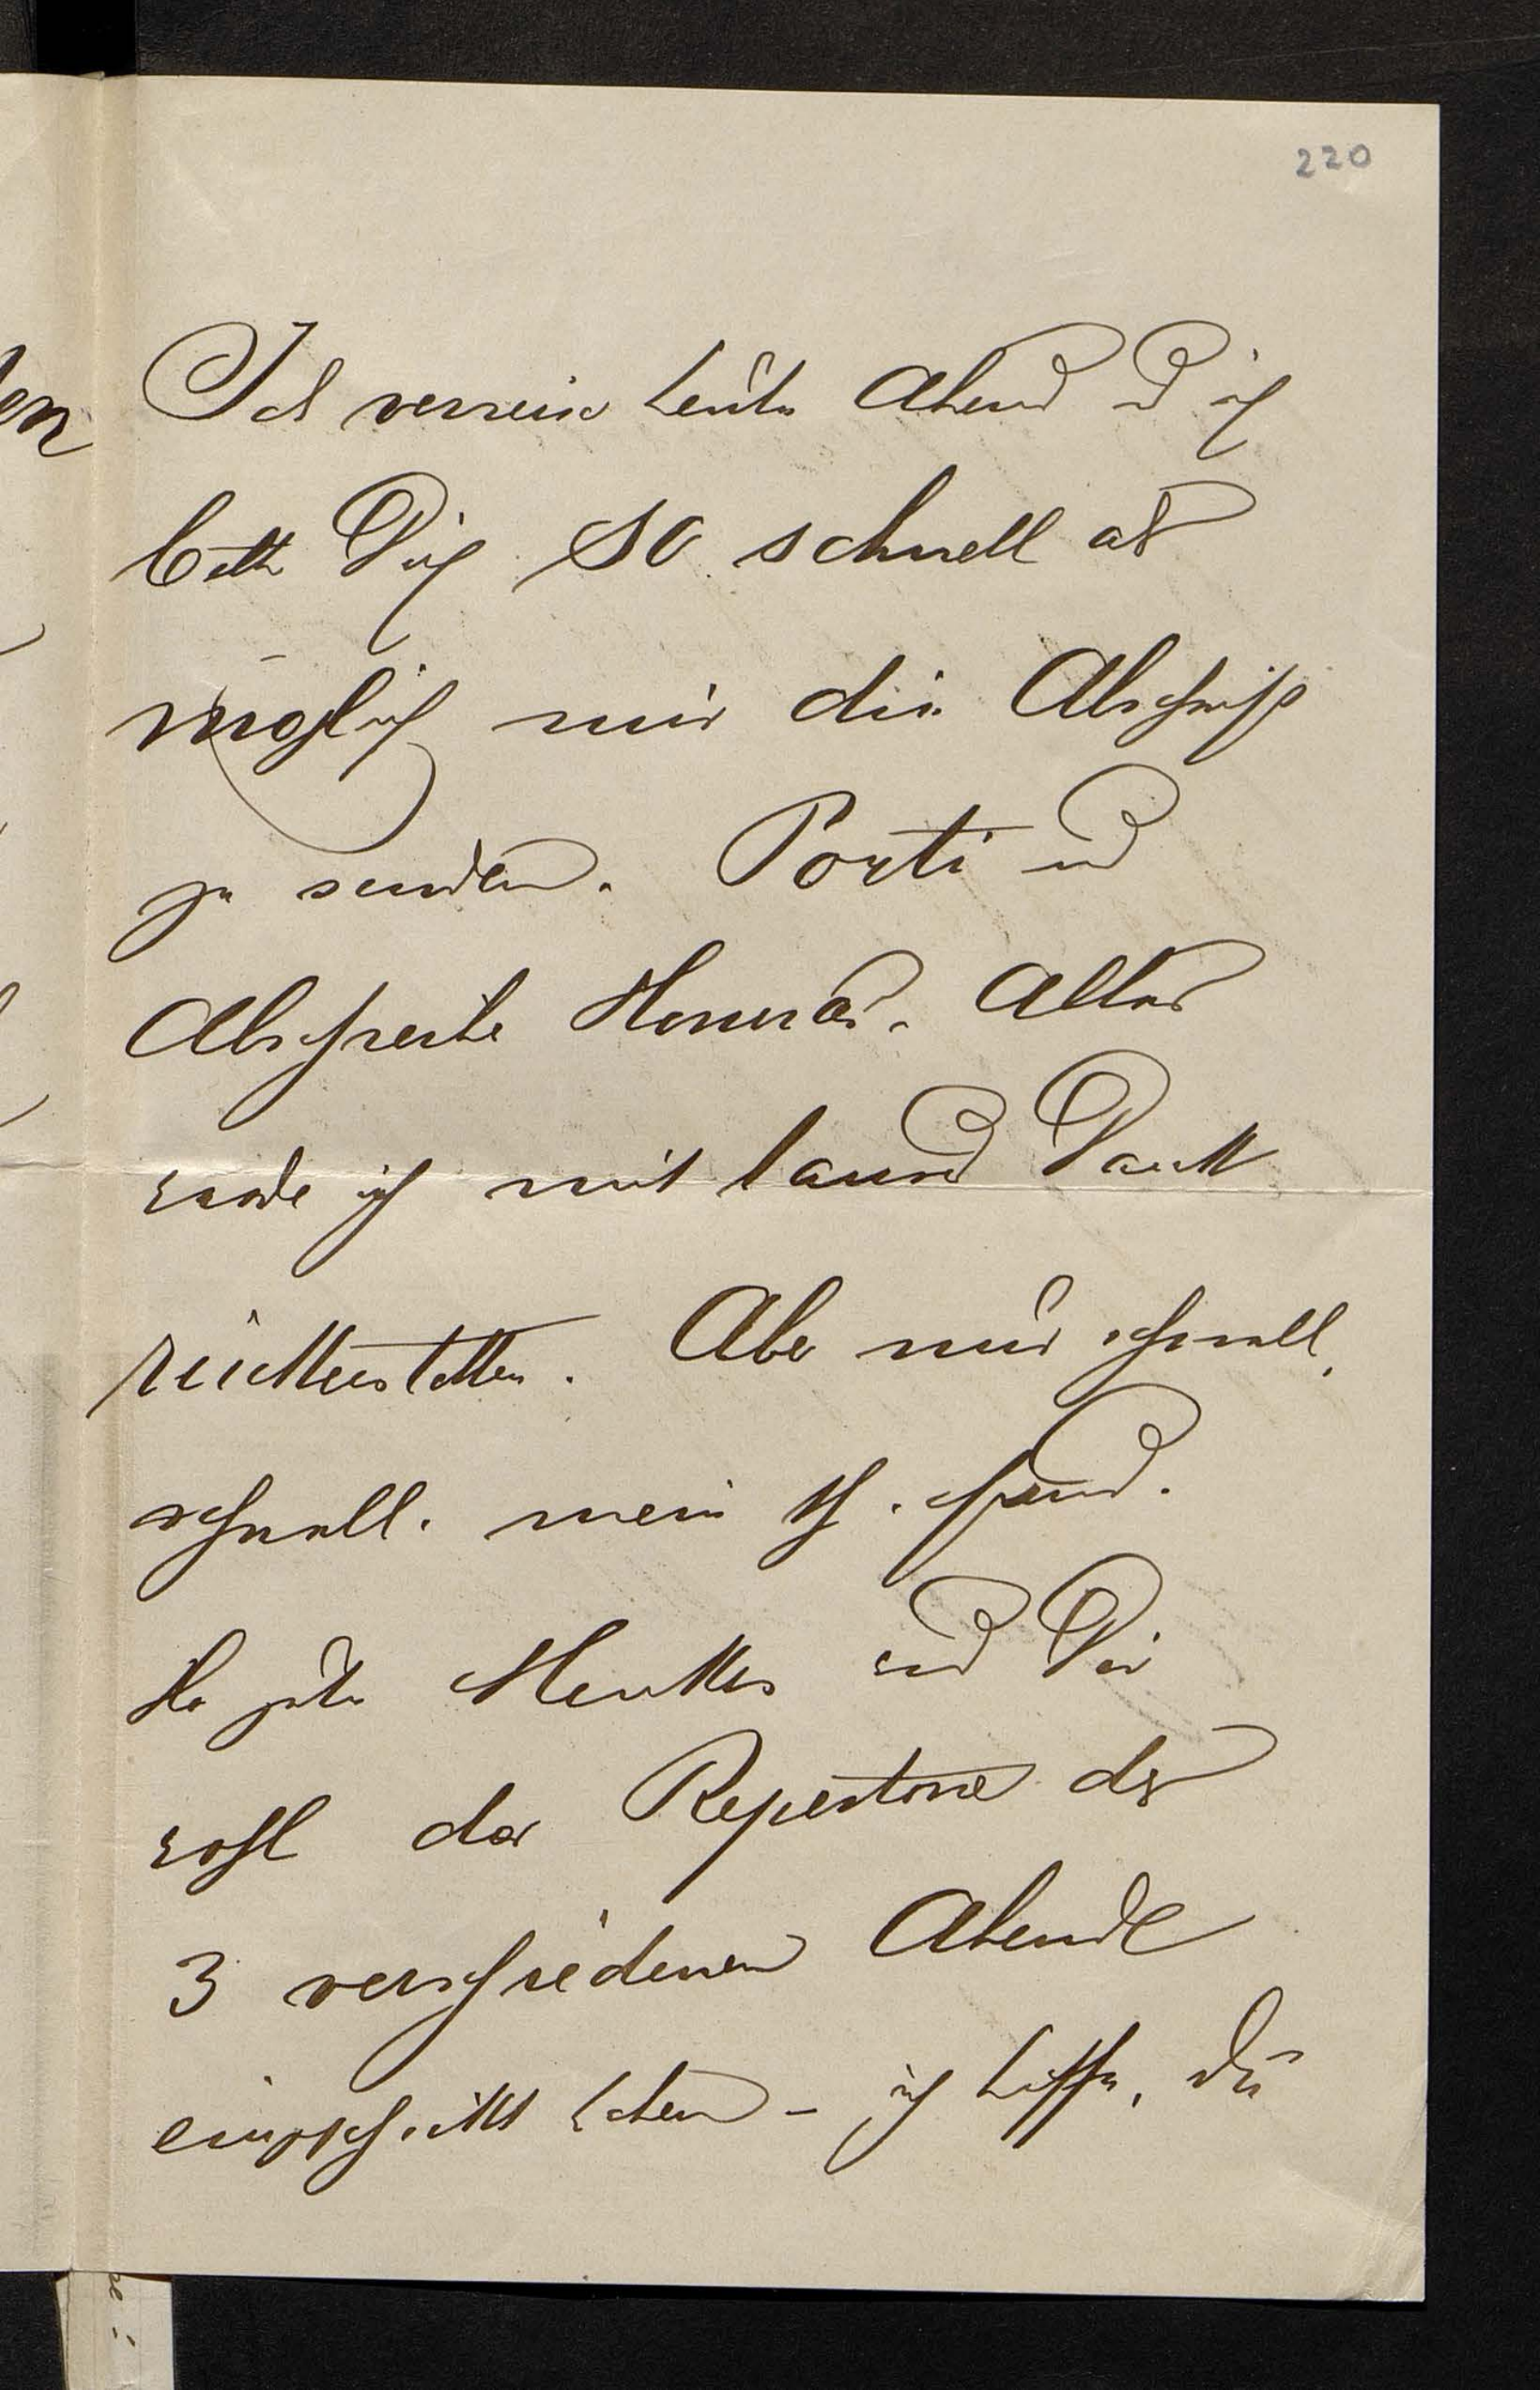 220
Ich verreise heute Abend und ich
bitte Dich so schnell als
möglich mir die Abschrift
zu senden. Porti und
Abschreibe Honorar. Alles
werde ich mit tausend Dank
rückerstatten. Aber nur schnell,
schnell. mein th. Freund.
Der gute und Dir
wohl das Repertoire der
3 verschiedenen Abende
eingeschickt haben – ich hoffe, Du